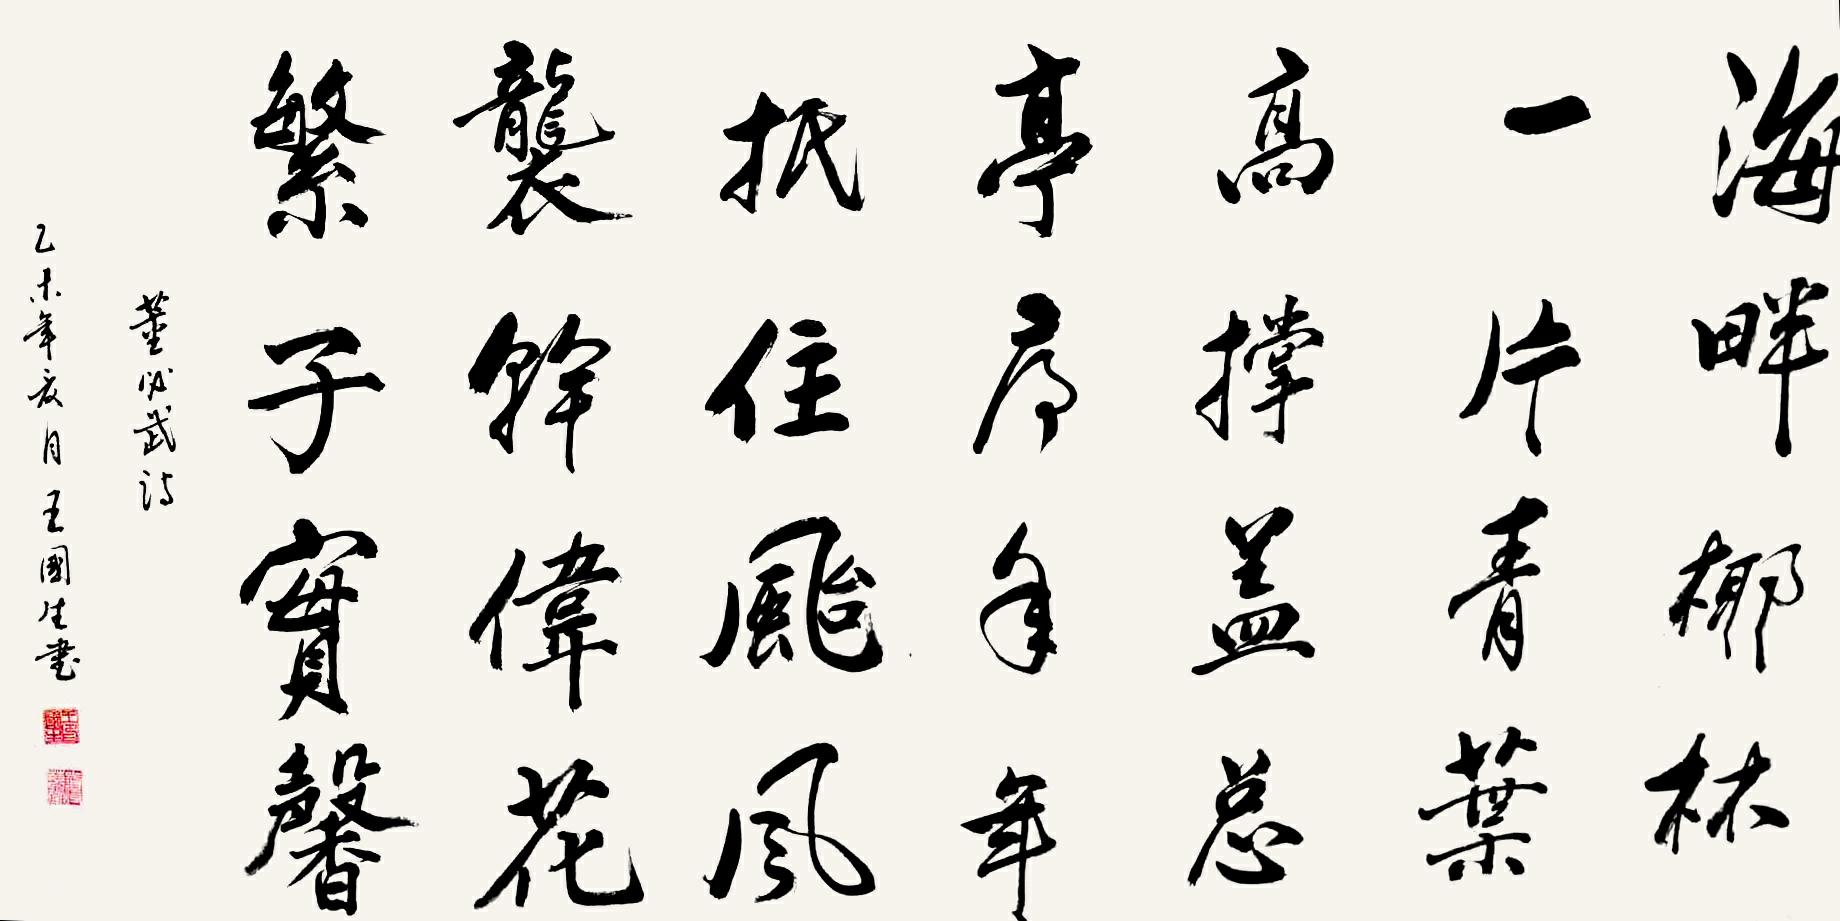 海畔椰林
一片青葉
高撐盖总
亭序年年
抵住颱風
襲幹偉花
繁子實馨
董必武诗
乙未年亥月王國生書